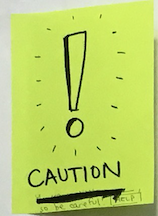 !
CAUTION
so be careful!